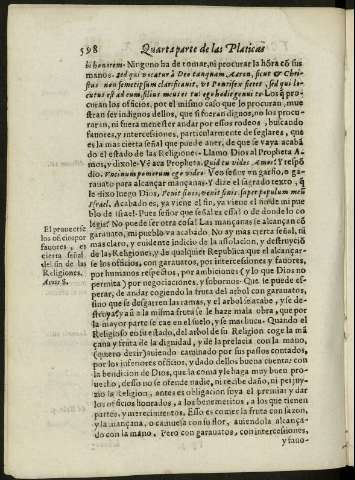 598 Quarta parte de las Platicas
bi honorem. Ninguno ha de tomar, ni procurar la hõra cõ sus
manos. sed qui vocatur à Deo tanquam Aaron, sicut & Chri-
stus non semetipsum clarificauit, vt Pontifex fieret, sed qui lo-
cutus est ad eum, filius meus es tu, ego hodie genui te. Los q̃ pro-
curan los oficios, por el mismo caso que lo procuran, mues-
tran ser indignos dellos, que si fueran dignos, no los procu-
raran, ni fuera menester andar por essos rodeos, buscando
fauores, y intercessiones, particularmente de seglares, que
es la mas cierta señal que puede auer, de que se vaya acabã
do el estado de las Religiones. Llamo Dios al Propheta A-
mos, y dixole: Vè acà Propheta. Quid tu vides Amos? Y respõ
dio. Vncinum pomorum ego video. Veo señor vn garfio, o ga-
rauato para alcançar mançanas. Y dize el sagrado texto, q̃
le dixo luego Dios, Venit finis, venit finis super populum meũ
Israel. Acabado es, ya viene el fin, ya viene el fin de mi pue
blo de Israel. Pues señor que señal es essa? o de donde lo co
legis? No puede ser otra cosa? Las mançanas se alcançan cõ
garauato, mi pueblo va acabado. No ay mas cierta señal, ni
mas claro, y euidente indicio de la assolacion, y destruyciõ
de las Religiones, y de qualquier Republica que el alcançar-
se los oficios, con garauatos, por intercessiones, y fauores,
por humanos respectos, por ambiciones (y lo que Dios no
permita) por negociaciones, y sobornos. Que se puede es-
perar, de andar cogiendo la fruta del arbol con garauatos,
sino que se desgarren las ramas, y el arbol se acabe, y se de-
struya? y aũ a la misma fruta se le haze mala obra, que por
la mayor parte se cae en el suelo, y se machuca. Quando el
Religioso en su estado, del arbol de su Religion coge la mã
çana y fruta de la dignidad, y de la prelacia con la mano,
(quiero dezir) auiendo caminado por sus passos contados,
por los inferiores oficios, y dado dellos buena cuenta: con
la bendicion de Dios, que la coma y le haga muy buen pro-
uecho, desso no se ofende nadie, ni recibe daño, ni perjuy-
zio la Religion, antes es obligacion suya el premiar y dar
los oficios honrados, a los benemeritos, a los que tienen
partes, y merecimientos. Esso es comer la fruta con sazon,
y la mançana, o camuesa con su flor, auiendola alcança-
do con la mano. Pero con garauatos, con intercessiones,
y fauo-
El pretenderse
los oficios por
fauores es
cierta señal
del fin de las
Religiones.
Amos 8.